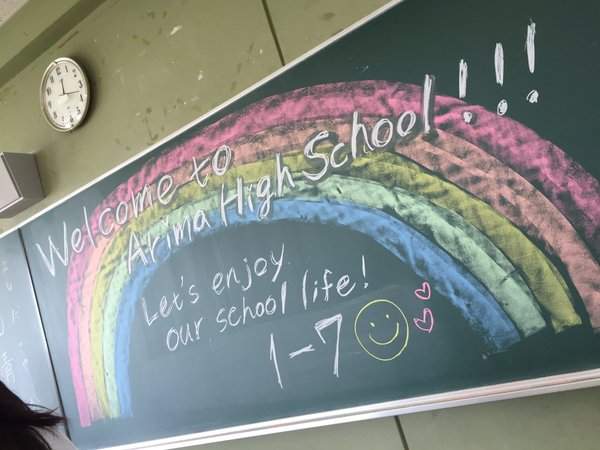 Welcome to
Arima High School!!!
Let's enjoy
our school life!
1-7